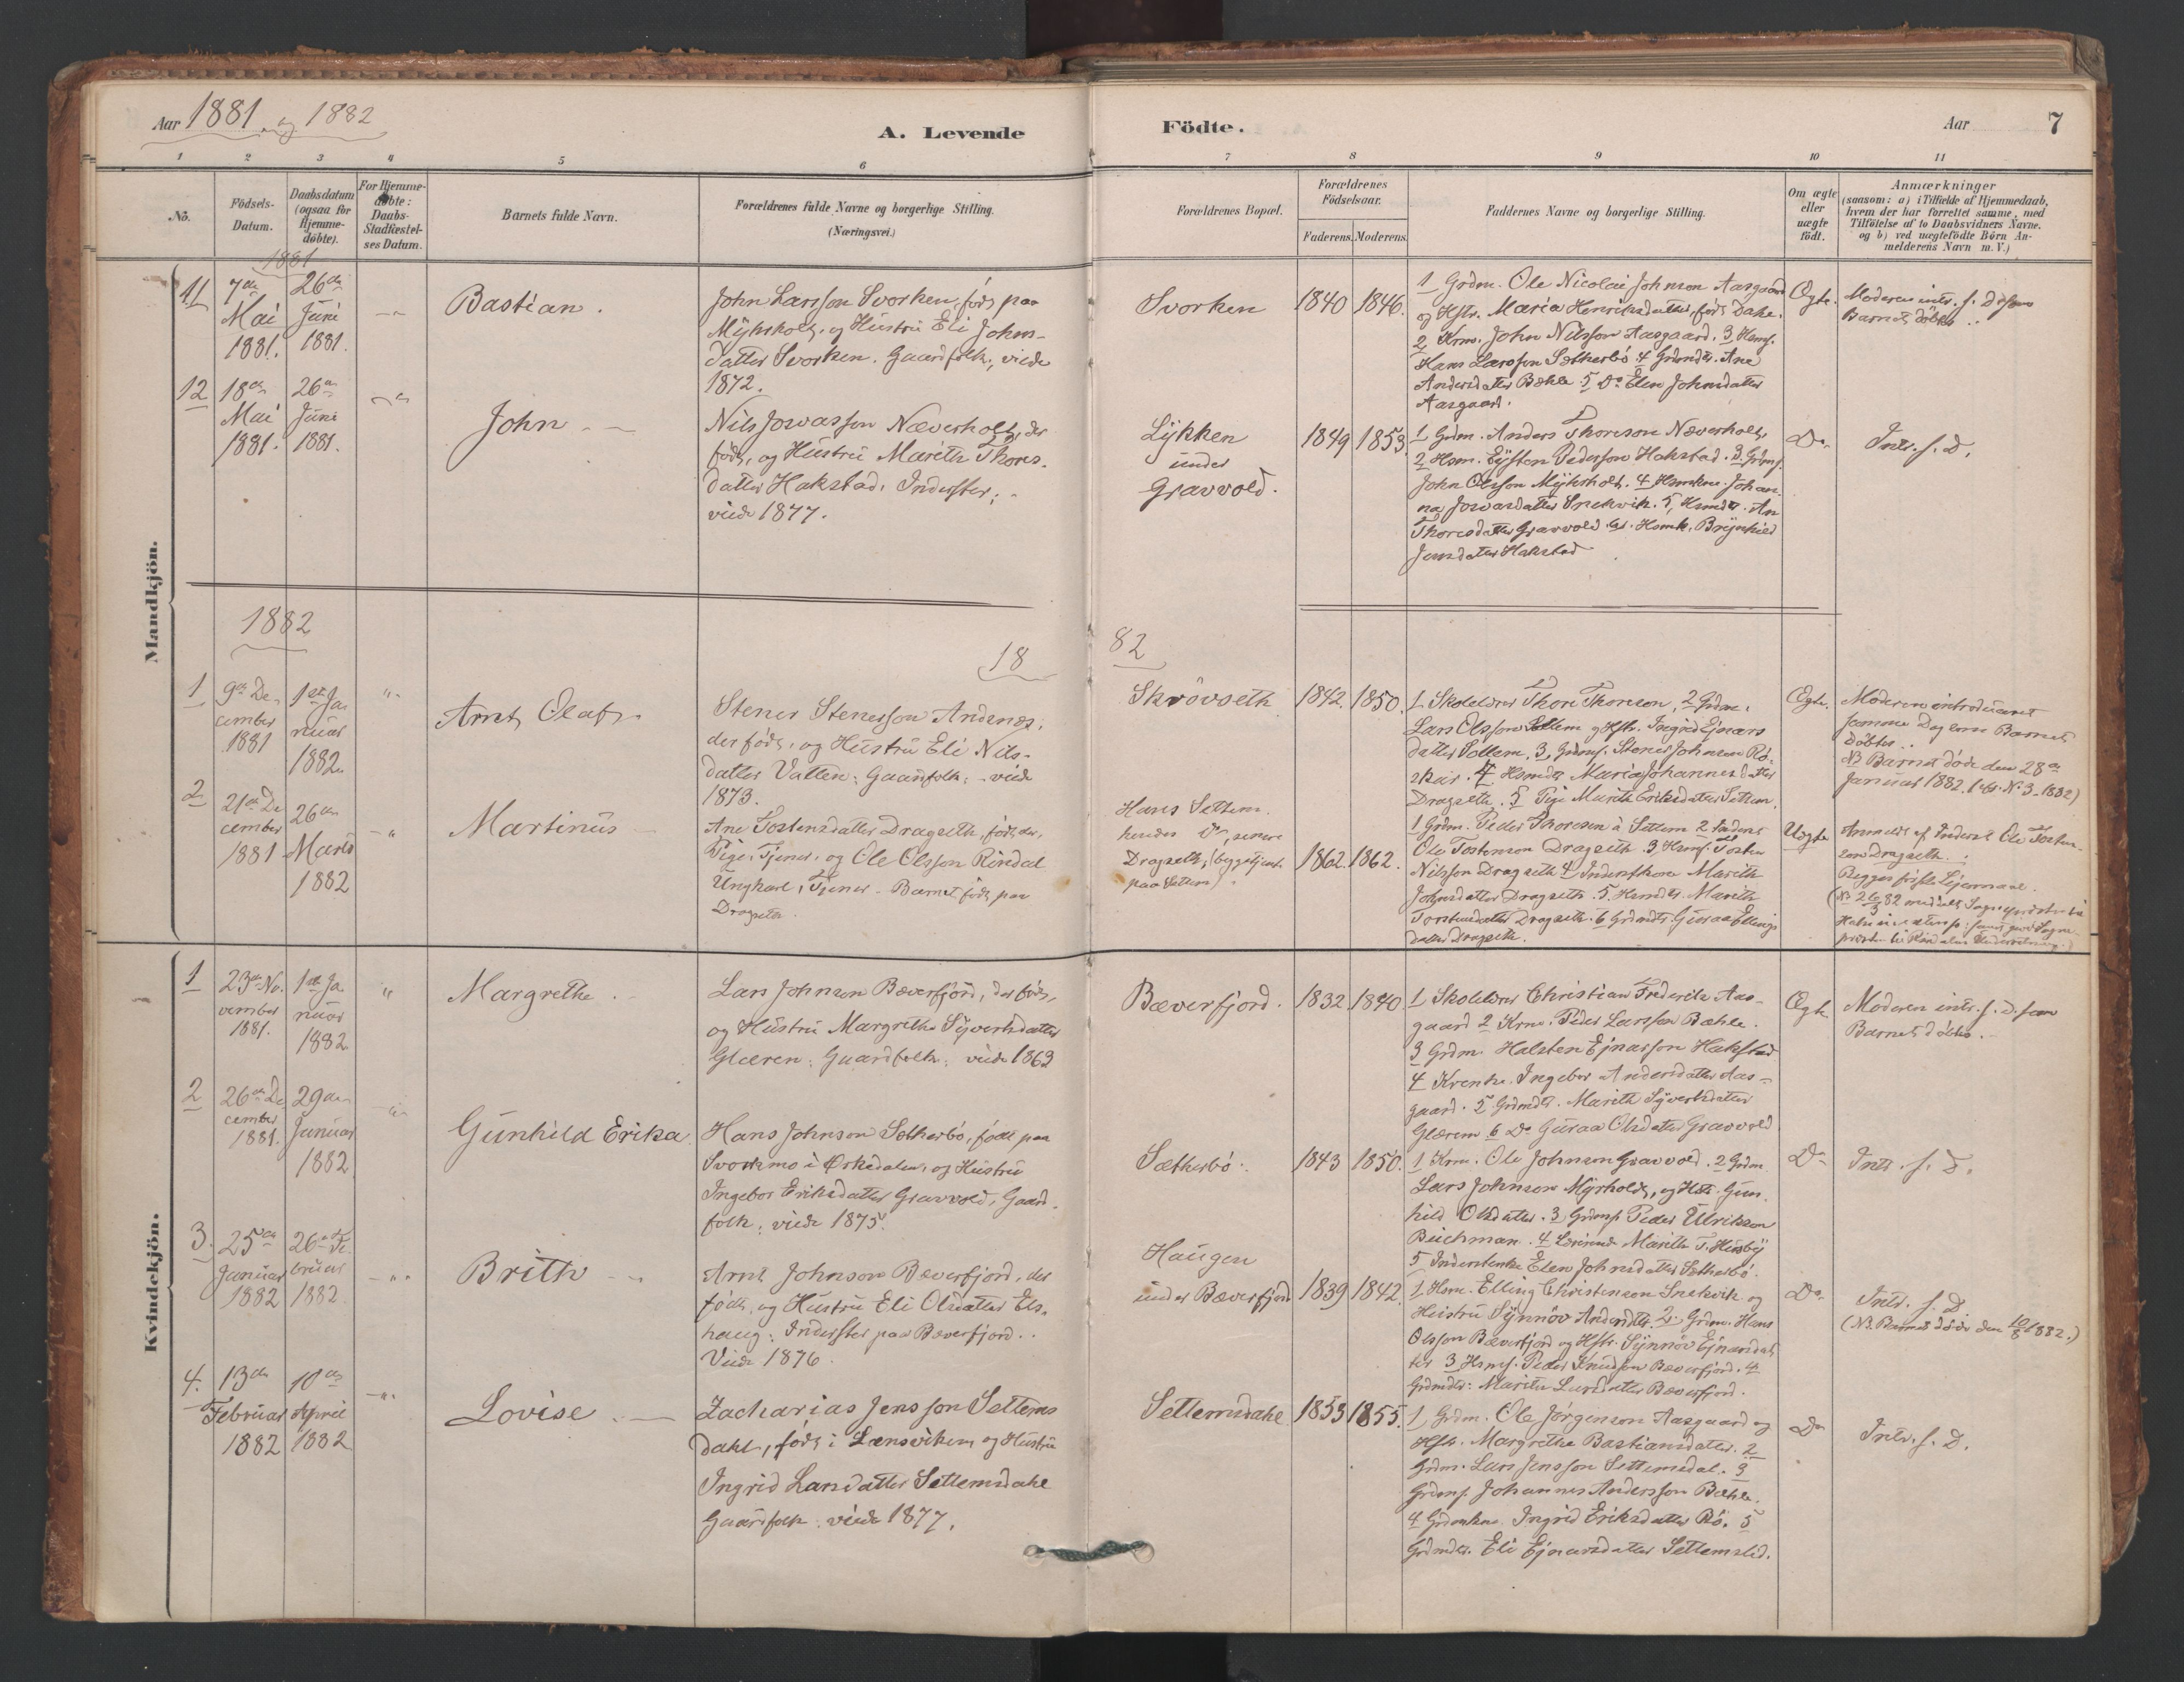 Aar 1881 og 1882
A. Levende
Födte.
Aar
7
1 2 3 4 5 6 7 8 9 10 11
No.
Födsels-
Datum.
Daabsdatum
(ogsaa for
Hjemme-
döbte).
For Hjemme-
döbte:
Daabs-
Stadfæstel-
ses Datum.
Barnets fulde Navn.
Forældrenes fulde Navne og borgerlige Stilling.
(Næringsvei.)
Forældrenes Bopæl.
Forældrenes
Födselsaar.
Faderens. Moderens.
Faddernes Navne og borgerlige Stilling.
Om ægte
eller
uægte
födt.
Anmærkninger
(saasom: a) i Tilfælde af Hjemmedaab,
hvem der har forrettet samme, med
Tilföielse af to Daabsvidners Navne.
og b) ved uægtefödte Börn An-
melderens Navn m. V.)
Mandkjön.
1881
11
7de
Mai
1881.
26de
Juni
1881.
Bastian.
John Larsson Svorken, föds paa
Myhrholt, og Hustru Eli Johns-
datter Svorken. Gaardfolk, viede
1872.
Svorken
1840 1846.
1 Grdm. Ole Nicolai Johnson Aasgaard
og Hstr. Maria Henriksdatter, föds Dahl.
2 Krm. John Nilsson Aasgaard. 3 Hsmf.
Hans Larsson Sætherbö 4 Grdmdtr. Ane
Andersdatter Bæhle 5 Do Elen Johnsdatter
Aasgaard.
Ægte.
Moderen intr. s. D. som
Barnet döbtes.
12
18de
Mai
1881.
26de
Juni
1881.
John
Nils Joвasson Næverholt, der
föds, og Hustru Marith Thores-
datter Hakstad, Inderster,
viede 1877.
Lykken
under
Gravvold.
1849 1853.
1 Grdm. Anders Thoreson Næverholt,
2 Hsm. Eysten Pederson Hakstad. 3 Grdmf.
John Olsson Myhrholt. 4 Hsmkone Johan-
Thoresdatter Gravvold
Jensdatter Hakstad
Do
Intr. s. D.
1882
18
82
1
9de De-
cember
1881
1ste Ja-
nuar
1882.
Arnt Olaf
Stener Stenersson Andenæs,
der föds, og Hustru Eli Nils-
datter Vatten: Gaardfolk: viede
1873.
Skrövseth
1842. 1850.
1 Skolelærer Thore Thoreson, 2 Grdm.
Lars Olsson Settem og Hstr. Ingrid Ejnars
datter Settem, 3 Grdmf. Stener Johnsen Rö-
skar. 4 Hsmdtr Maria Johannesdatter
Dragseth. 5 Pige Marith Eriksdatter Settem.
Ægte.
Moderen introduceret
samme Dag som Barnet
döbtes.
NB Barnet döde den 28de
Januar 1882.
2
21de De
cember
1881
26de
Marts
1882
Martinus
Ane Tostensdatter Dragseth, föds der,
Pige, Tjener, og Ole Olsson Rindal
Ungkarl, Tjener. Barnet föds paa
Dragseth.
Hans Settem
hendes Do, senere
Dragseth,
paa Settem.
1862. 1862.
1 Grdm. Peder Thoresen á Settem 2 Inderst
Ole Tostenson Dragseth. 3 Hsmf. Tosten
Nilsson Dragseth 4 Inderstkone Marith
Johnsdatter Dragseth. 5 Hsmdtr. Marith
Torstensdatter Dragseth. 6 Grdmdtr. Guraa Ellings
datter Dragseth.
Uægte
Anmeldt af Inderst Ole Tosten-
son Dragseth.
Begges förste Leiermaal.
Kvindekjön.
1
23de No-
vember
1881.
1ste Ja-
nuar
1882
Margrethe
Lars Johnson Bæverfjord, der föds,
og Hustru Margrethe Syvertsdatter
Glæren: Gaardfolk: viede 1863
Bæverfjord.
1832. 1840.
1 Skolelærer Christian Frederik Aas-
gaard 2 Krm. Peder Larsson Bæhle.
3 Grdm. Halsten Ejnarsson Hakstad
4 Krenke. Ingebor Andersdatter Aas-
gaard. 5 Grdmdtr. Marith Syvertsdatter
Glærem 6 Do Guraa Olsdatter Gravvold
Ægte
Moderen intr. s. D. som
Barnet döbtes.
2
26de De
cember
1881.
29de
Januar
1882
Gunhild Erika
Hans Johnson Sætherbö, född paa
Svorkmo i Orkedalen, og Hustru
Ingebor Eriksdatter Gravvold, Gaard-
folk: viede 1875.
Sætherbö.
1843 1850.
1 Krm. Ole Johnson Gravvold. 2 Grdm.
Lars Johnson Myrholt, og Hstr. Gun-
hild Olsdatter. 3 Grdmf. Peder Ulrikson
Buchman. 4 Lærerinde Marith T. Husby
5 Inderstenke Elen Johnsdatter Sætherbö.
Do
Intr. s. D.
3.
25de
Januar
1882
26de Fe-
bruar
1882.
Brith
Arnt Johnson Bæverfjord, der
föds, og Hustru Eli Olsdatter Els-
haug: Inderster paa Bæverfjord.
Viede 1876.
Haugen
under Bæverfjord
1839 1842.
1 Hsm. Elling Christenson Snekvik og
Hustru Synnöv Andersdtr. 2 Grdm. Hans
Olsson Bæverfjord og Hstr. Synnöv Ejnarsdat
ter 3 Hsmf. Peder Knudson Bæverfjord. 4
Grdmdtr: Marith Larsdatter Bæverfjord.
Do
Intr. s. D
(NB. Barnet döde den 10/8 1882.)
4.
13de
Februar
1882
10de
April
1882
Lovise
Zacharias Jensson Settems
dahl, föds i Lensviken, og Hustru
Ingrid Larsdatter Settemsdahl
Gaardfolk: viede 1877.
Settemsdahl
1853 1855.
1 Grdm. Ole Jörgenson Aasgaard og
Hstr. Margrethe Bastiansdatter. 2
Grdm. Lars Jensson Settemsdal. 3
Grdmf. Johannes Andersson Bæhle.
4 Grdmkone. Ingrid Eriksdatter Rö. 5
Grdmdtr. Eli Ejnarsdatter Settemslid.
Do
Intr. s. D.